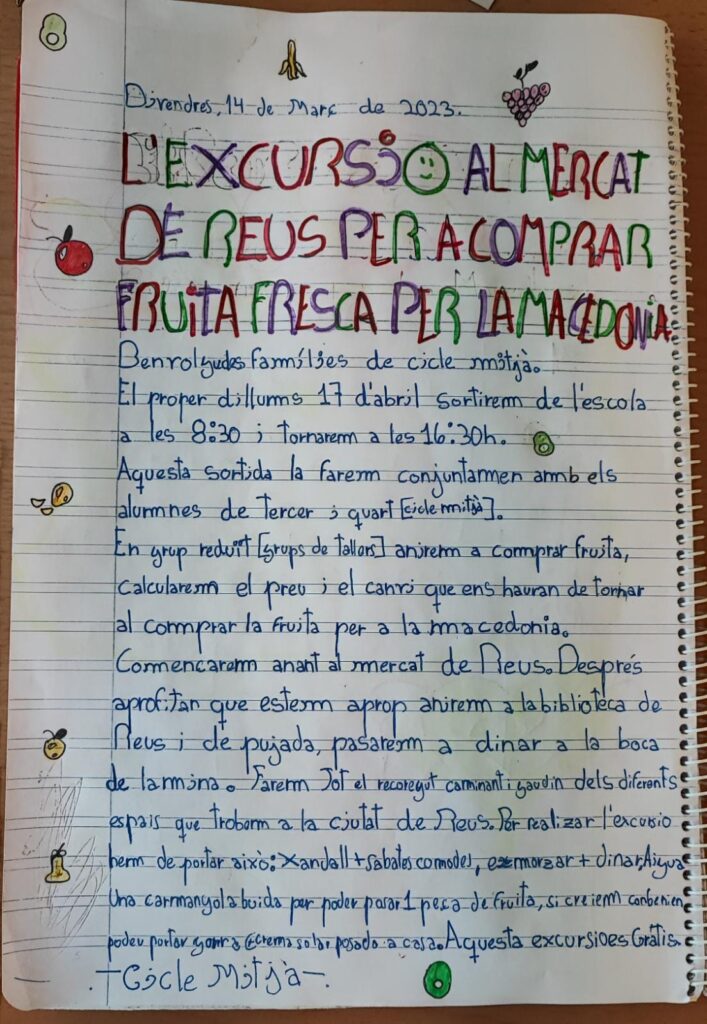 Divendres, 14 de Març de 2023.
L'EXCURSIÓ AL MERCAT
DE REUS PER A COMPRAR
FRUITA FRESCA PER LA MACEDONIA
Benvolgudes famílies de cicle mitjà.
El proper dillums 17 d'abril sortirem de l'escola
a les 8:30 i tornarem a les 16:30h.
Aquesta sortida la farem conjuntarmen amb els
alumnes de tercer i quart [cicle mitjà].
En grup reduït [grups de tallers] anirem a comprar fruita,
calcularem el preu i el canvi que ens hauran de tornar
al comprar la fruita per a la macedonia.
Comencarem anant al mercat de Reus. Després
aprofitan que estem aprop anirem a la biblioteca de
Reus i de pujada, pasarem a dinar a la boca
de la mina. Farem Tot el recoregut caminant i gaudin dels diferents
espais que trobem a la ciutat de Reus. Per realizar l'excursio
hem de portar això: Xandall + sabates comodes, esmorzar + dinar, Aigua
Una carmanyola buida per poder posar 1 peça de fruita, si creiem conbenien
podeu portar gorra crema solar posado a casa. Aquesta excursio es Gratis.
-Cicle Mitjà-.